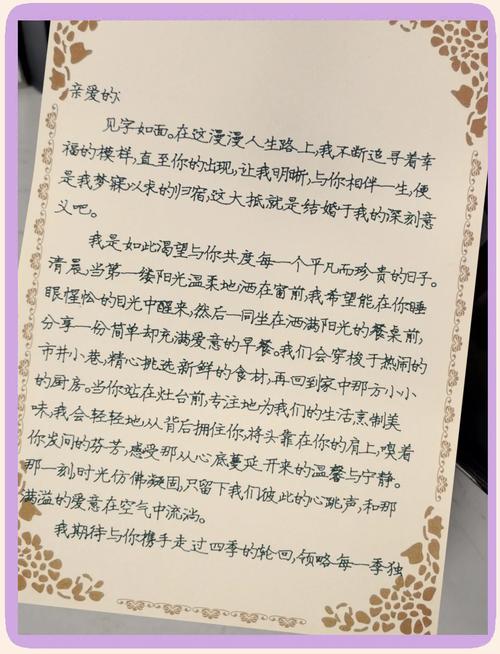 亲爱的:
见字如面。在这漫漫人生路上,我不断追寻着幸
福的模样,直至你的出现,让我明晰,与你相伴一生,便
是我梦寐以来的归宿,这大抵就是结婚于我的深刻意
义吧。
我是如此渴望与你共度每一个平凡而珍贵的日子。
清晨,当第一缕阳光温柔地洒在窗前,我希望能在你睡
眼惺忪的目光中醒来,然后一同坐在洒满阳光的餐桌前,
分享一份简单却充满爱意的早餐。我们会穿梭于热闹的
市井小巷,精心挑选新鲜的食材,再回到家中那方小小
的厨房。当你站在灶台前,专注地为我们的生活烹制美
味,我会轻轻地从背后拥住你,将头靠在你的肩上,嗅着
你发间的芬芳,感受那从心底蔓延开来的温馨与宁静。
那一刻,时光仿佛凝固,只留下我们彼此的心跳声,和那
满溢的爱意在空气中流淌。
我期待与你携手走过四季的轮回,领略每一季独